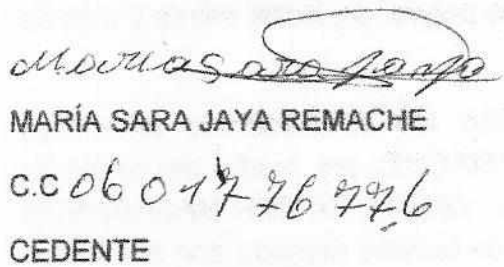 Maria Sara
MARÍA SARA JAYA REMACHE
C.C 0601776776
CEDENTE